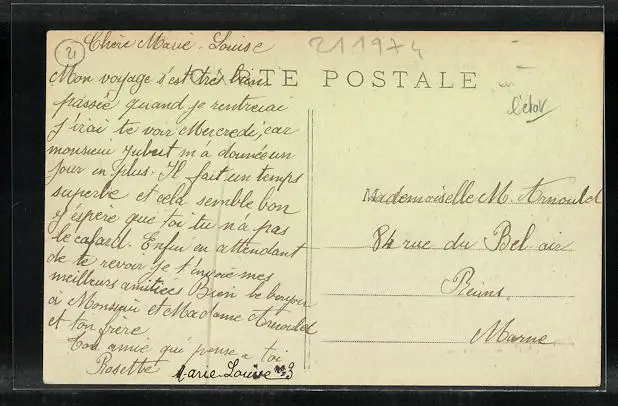 21
Chère Marie-Louise
211974
CARTE POSTALE
l'état
Mon voyage s'est très bien
passée quand je rentrerai
j'irai te voir Mercredi, car
monsieur Jubert m'a donnée un
jour en plus. Il fait un temps
superbe et cela semble bon
j'éspère que toi tu n'a pas
le cafard. Enfin en attendant
de te revoir je t'envoie mes
meilleurs amitiées Bien le bonjour
à Monsieur et Madame Arnould
et ton frère
Ton amie qui pense a toi
Rosette
Marie-Louise n° 3
Mademoiselle M. Arnould
84 rue du Bel air
Reims
Marne